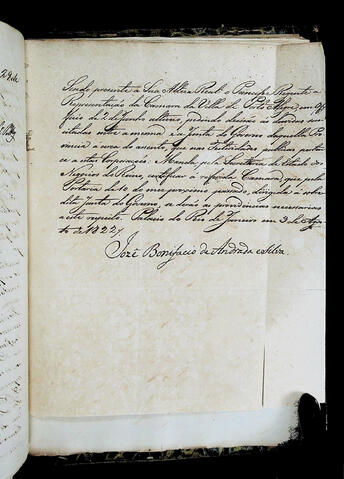 Sendo presente a Sua Alteza Real o Principe Regente a
Representação da Camara da Villa de Porto Alegre, em Of-
ficio de 2 de Junho ultimo, pedindo decisão ás duvidas
entre a mesma e a Junta do Governo daquella Pro-
vincia acerca do assento que nas Festividades publicas perten-
ce a estas Corporações: Manda pela Secretaria de Estado dos
Negocios do Reino, certificar á referida Camara, que pela
Portaria de 10 do mez proximo passado, dirigida á sobre-
dita Junta do Governo, se derão as providencias necessarias
a este respeito. Palacio do Rio de Janeiro em 3 de Agos-
to de 1822.
José Bonifacio de Andrada e Silva.